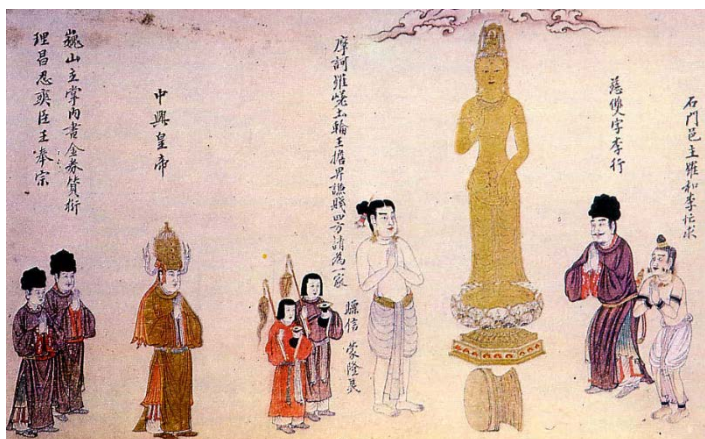 石門邑主羅和李忙求
慈雙字李行
摩訶羅嵯土輪王擔畀謙賤四方請為一家
驃信 蒙隆昊
中興皇帝
巍山主掌內書金券贊衛
理昌忍爽臣王奉宗